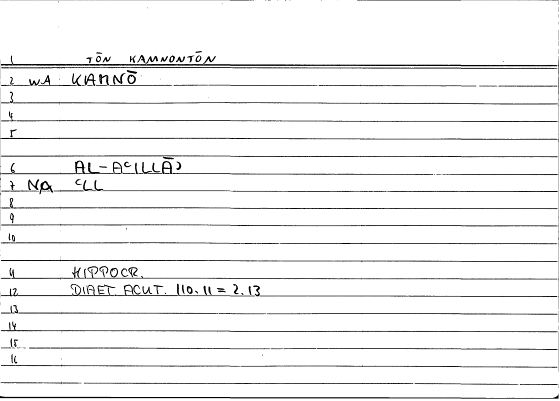 1 TŌN KAMNONTŌN
2 WA KAMNŌ
3
4
5
6 AL-AʿILLĀʾ
7 NA ʿLL
8
9
10
11 HIPPOCR.
12 DIAET. ACUT. 110.11 = 2.13
13
14
15
16